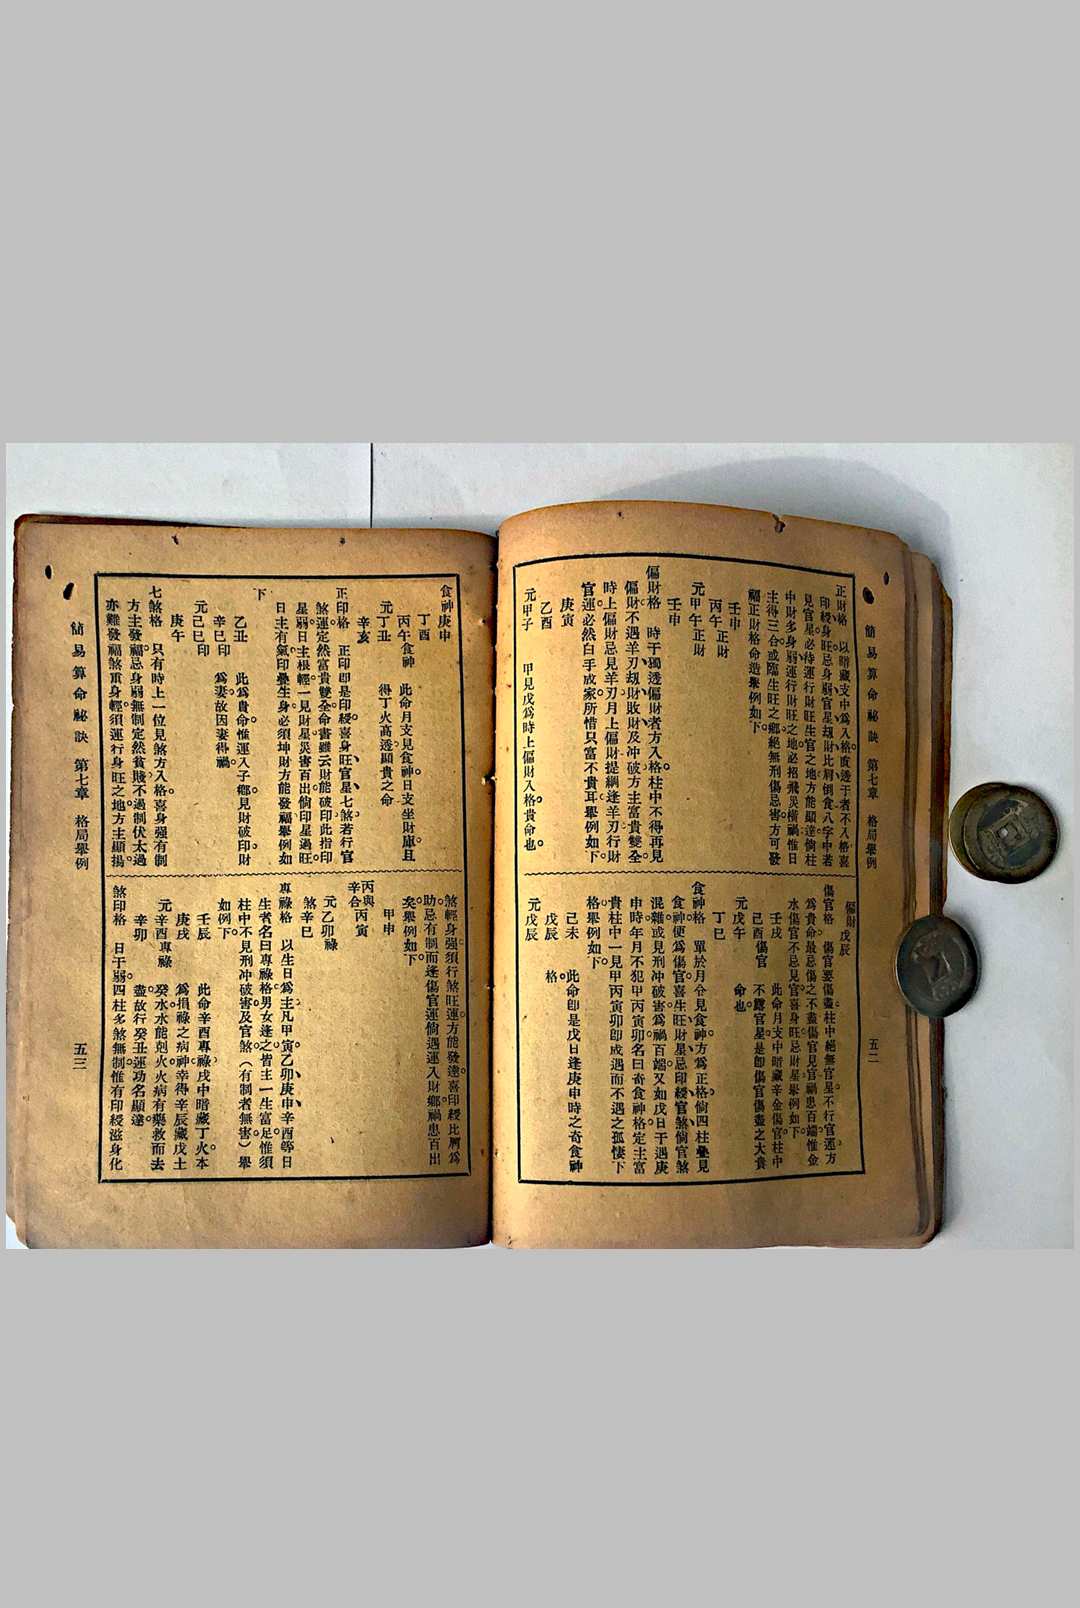 簡易算命祕訣　第七章　格局舉例　五二
正財格　以暗藏支中爲入格直透于者不入格喜
印綬身旺忌身弱官星刼財比肩倒食八字中若
見官星必待運行財旺生官之地方能顯達倘柱
中財多身弱運行財旺之地必招飛災橫禍惟日
主得三合或臨生旺之鄕絕無刑傷忌害方可發
福正財格命造舉例如下。
壬申
丙午正財
元甲午正財
壬申
偏財格　時干獨透偏財者方入格。柱中不得再見
偏財不遇羊刃刼財敗財及冲破方主富貴雙全
時上偏財忌見羊刃月上偏財提綱逢羊刃行財
官運必然白手成家所惜只富不貴耳舉例如下
庚寅
乙酉
元甲子　甲見戊爲時上偏財入格。貴命也。
偏財戊辰
傷官格　傷官要傷盡柱中絕無官星不行官運方
爲貴命最忌傷之不盡傷官見官禍患百端惟金
水傷官不忌見官喜身旺忌財星舉例如下
壬戌　此命月支中暗藏辛金傷官柱中
己酉傷官　不露官星是卽傷官傷盡之大貴
元戊午　命也。
丁巳
食神格　單於月令見食神方爲正格倘四柱疊見
食神便爲傷官喜生旺財星忌印綬官煞倘官煞
混雜或見刑冲破害爲禍百端又如戊日干遇庚
申時年月不犯甲丙寅卯名曰奇食神格定主富
貴柱中一見甲丙寅卯卽成遇而不遇之孤悽下
格舉例如下。
己未　此命卽是戊日逢庚申時之奇食神
戊辰　格。
元戊辰
食神庚申
丁酉
丙午食神　此命月支見食神日支坐財庫且
元丁丑　得丁火高透顯貴之命
辛亥
正印格　正印卽是印綬喜身旺官星七煞若行官
煞運定然富貴雙全命書雖云財能破印此指印
星弱日主根輕一見財星災害百出倘印星過旺
日主有氣印疊生身必須坤財方能發福舉例如
下
乙丑　此爲貴命惟運入子鄉見財破印財
辛巳印　爲妻故因妻得禍。
元己巳印
庚午
七煞格　只有時上一位見煞方入格喜身强有制
方主發福忌身弱無制定然貧賤不過制伏太過
亦難發福煞重身輕須運行身旺之地方主顯揚
煞輕身强須行煞旺運方能發達喜印綬比肩爲
助忌有制而逢傷官運倘遇運入財鄉禍患百出
矣舉例如下。
甲申
丙與辛合丙寅
元乙卯祿
煞辛巳
專祿格　以生日爲主凡甲寅乙卯庚申辛酉等日
生者名曰專祿格男女逢之皆主一生富足惟須
柱中不見刑冲破害及官煞（有制者無害）舉
如例下。
壬辰　此命辛酉專祿戌中暗藏丁火本
庚戌　爲損祿之病神幸得辛辰藏戊土
元辛酉專祿　癸水水能剋火火病有藥救而去
辛卯　盡故行癸丑運功名顯達。
煞印格　日干弱。四柱多煞無制惟有印綬滋身化
簡易算命祕訣　第七章　格局舉例　五三